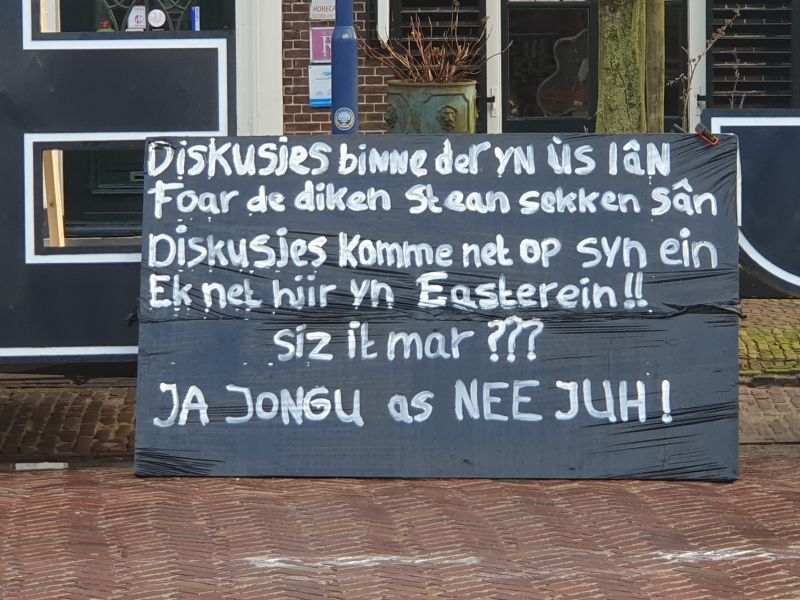 HORECA
Diskusjes binne der yn ùs lân
Foar de diken stean sekken sân
Diskusjes komme net op syn ein
Ek net hiir yn Easterein!!
siz it mar ???
JA JONGU as NEE JUH!